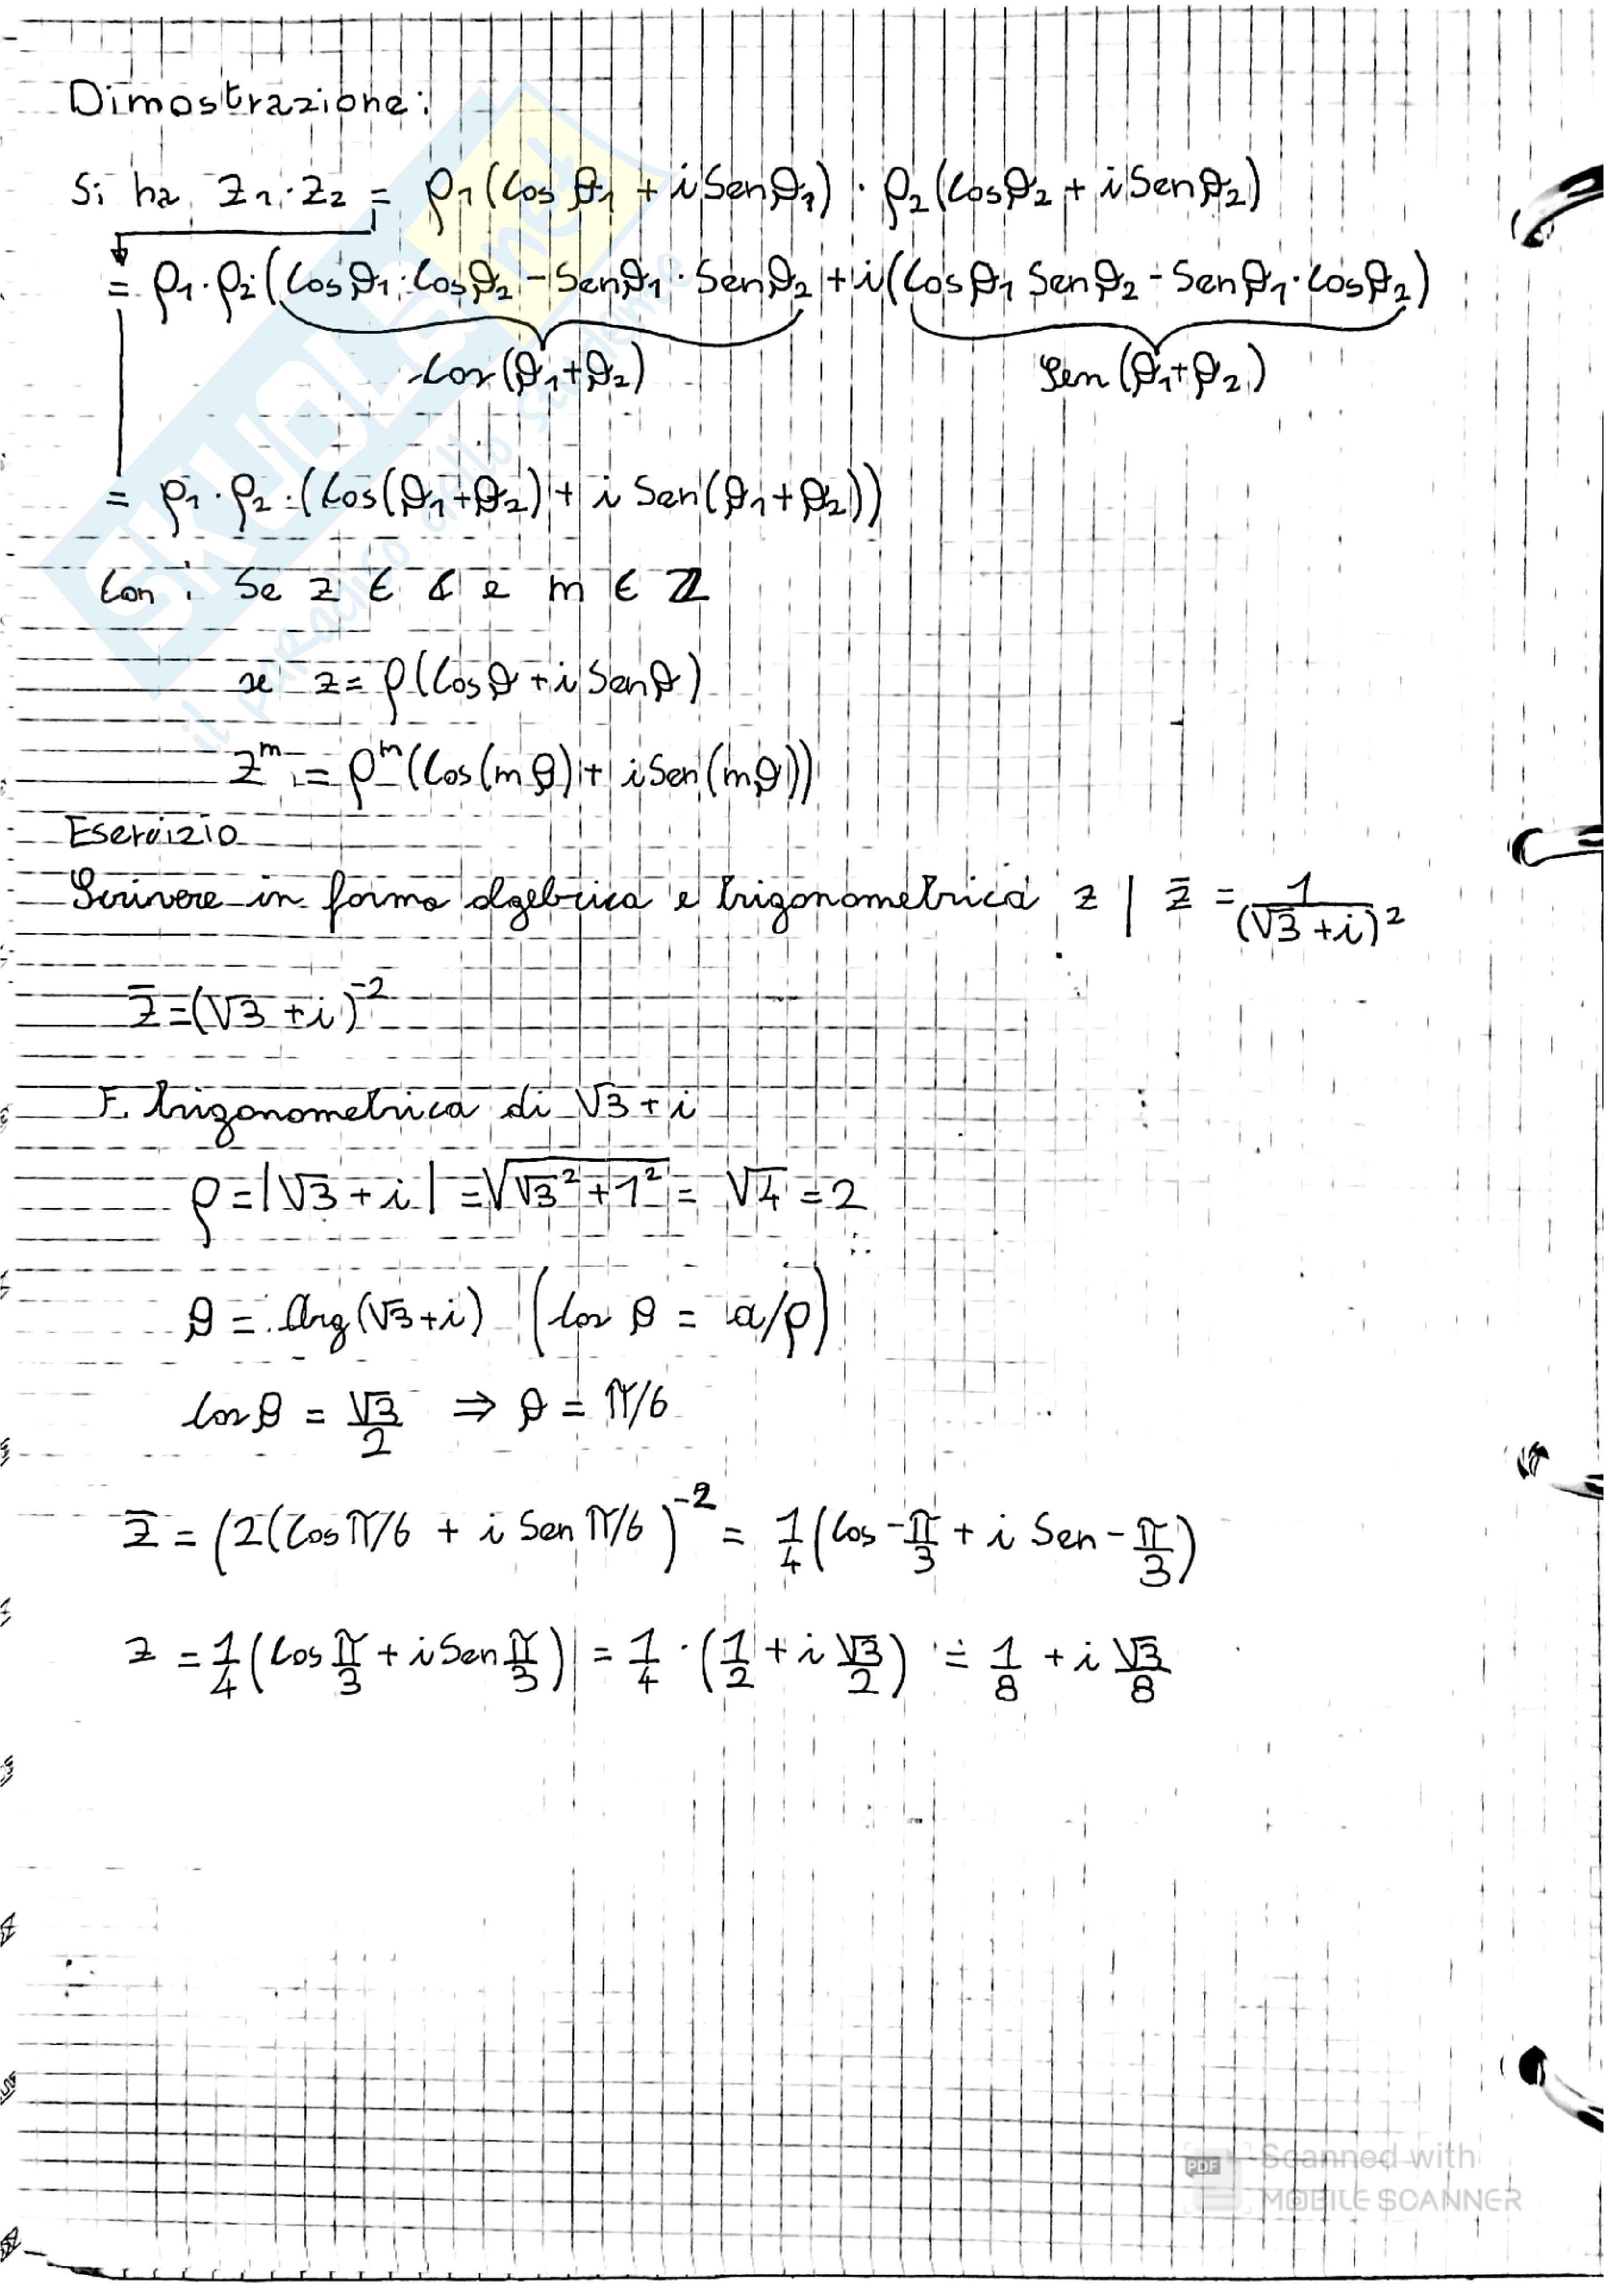 Dimostrazione:
Si ha z₁·z₂ = ρ₁(cos ϑ₁ + i sen ϑ₁) · ρ₂(cos ϑ₂ + i sen ϑ₂)
= ρ₁·ρ₂·(cos ϑ₁·cos ϑ₂ - sen ϑ₁·sen ϑ₂ + i(cos ϑ₁ sen ϑ₂ - sen ϑ₁·cos ϑ₂)
cos(ϑ₁+ϑ₂) sen(ϑ₁+ϑ₂)
= ρ₁·ρ₂·(cos(ϑ₁+ϑ₂) + i sen(ϑ₁+ϑ₂))
Con: Se z ∈ ℂ e m ∈ ℤ
se z = ρ(cos ϑ + i sen ϑ)
z^m = ρ^m (cos(mϑ) + i sen(mϑ))
Esercizio
Scrivere in forma algebrica e trigonometrica z | z̄ = 1/(√3 + i)²
z̄ = (√3 + i)⁻²
F. trigonometrica di √3 + i
ρ = |√3 + i| = √(√3² + 1²) = √4 = 2
ϑ = Arg(√3+i) (cos ϑ = a/ρ)
cos ϑ = √3/2 ⇒ ϑ = π/6
z̄ = (2(cos π/6 + i sen π/6)⁻² = 1/4 (cos -π/3 + i sen -π/3)
z = 1/4 (cos π/3 + i sen π/3) = 1/4 · (1/2 + i √3/2) = 1/8 + i √3/8
SKUOLA.net
il paradiso dello studente
PDF
Scanned with
MOBILE SCANNER